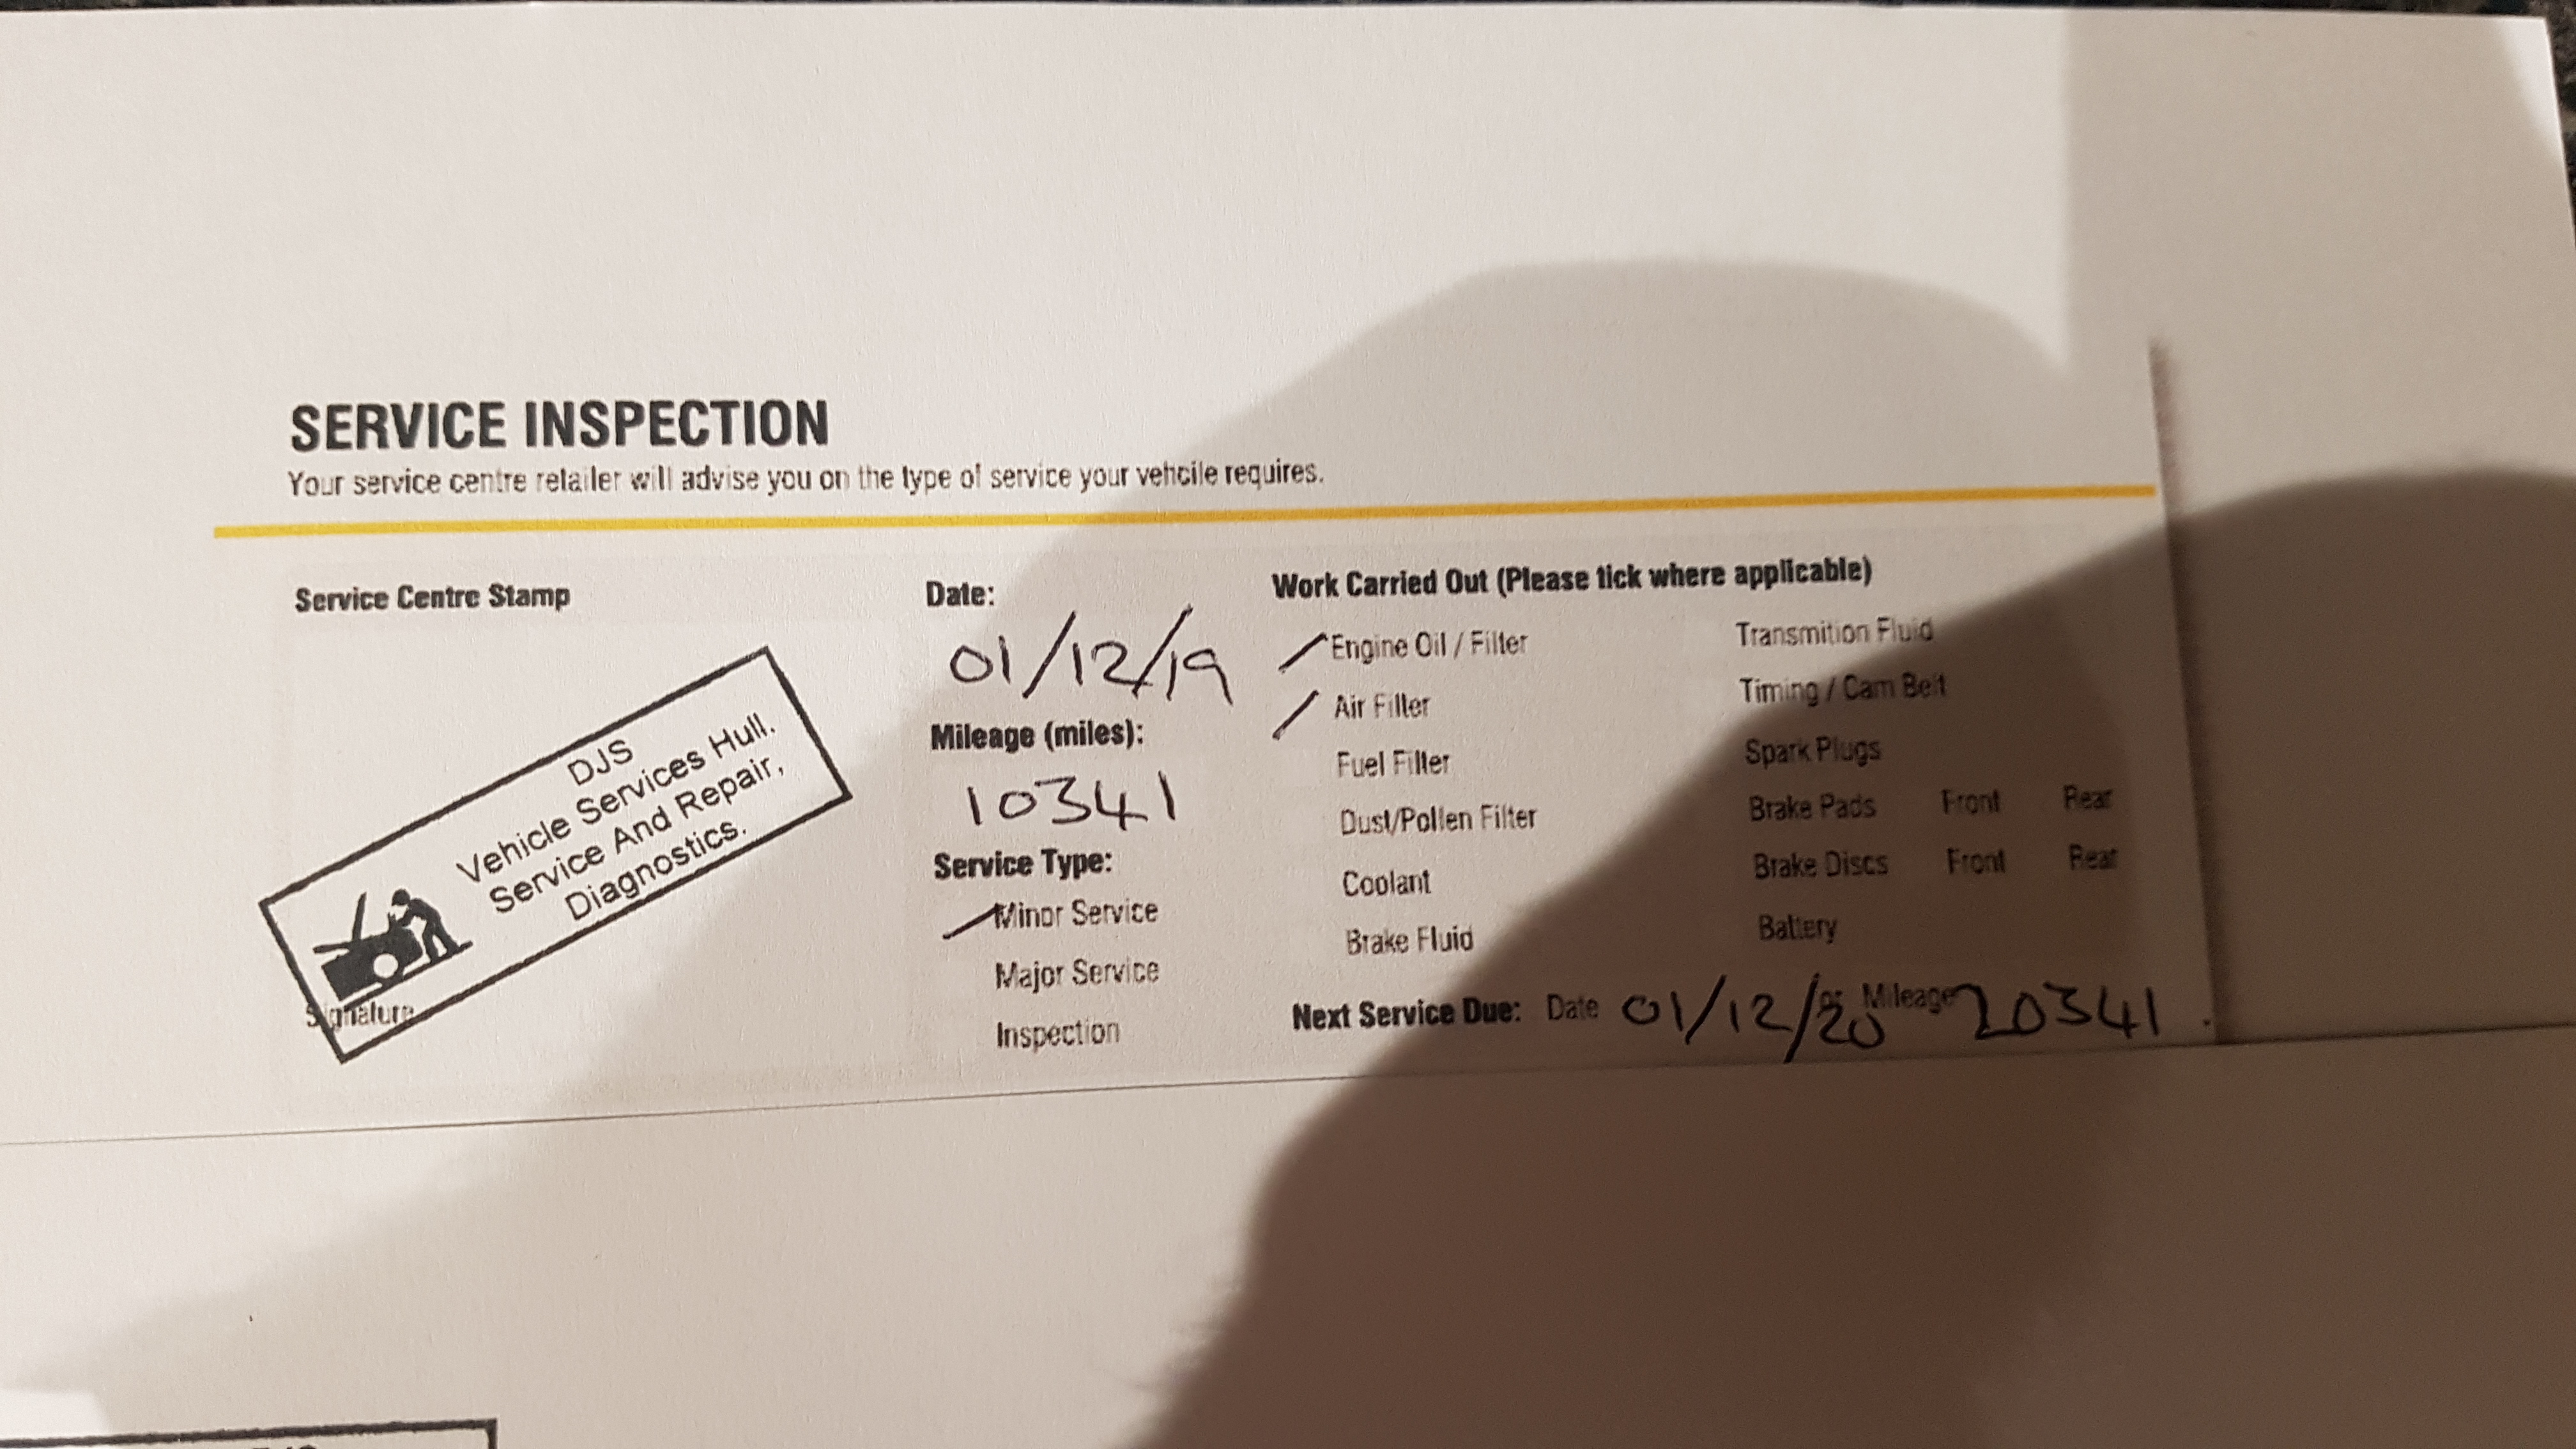 SERVICE INSPECTION
Your service centre retailer will advise you on the type of service your vehcile requires.
Service Centre Stamp
DJS
Vehicle Services Hull.
Service And Repair,
Diagnostics.
Signature
Date:
01/12/19
Mileage (miles):
10341
Service Type:
Minor Service
Major Service
Inspection
Work Carried Out (Please tick where applicable)
Engine Oil / Filter
Air Filter
Fuel Filter
Dust/Pollen Filter
Coolant
Brake Fluid
Transmition Fluid
Timing / Cam Belt
Spark Plugs
Brake Pads Front Rear
Brake Discs Front Rear
Battery
Next Service Due: Date 01/12/20 or Mileage 20341